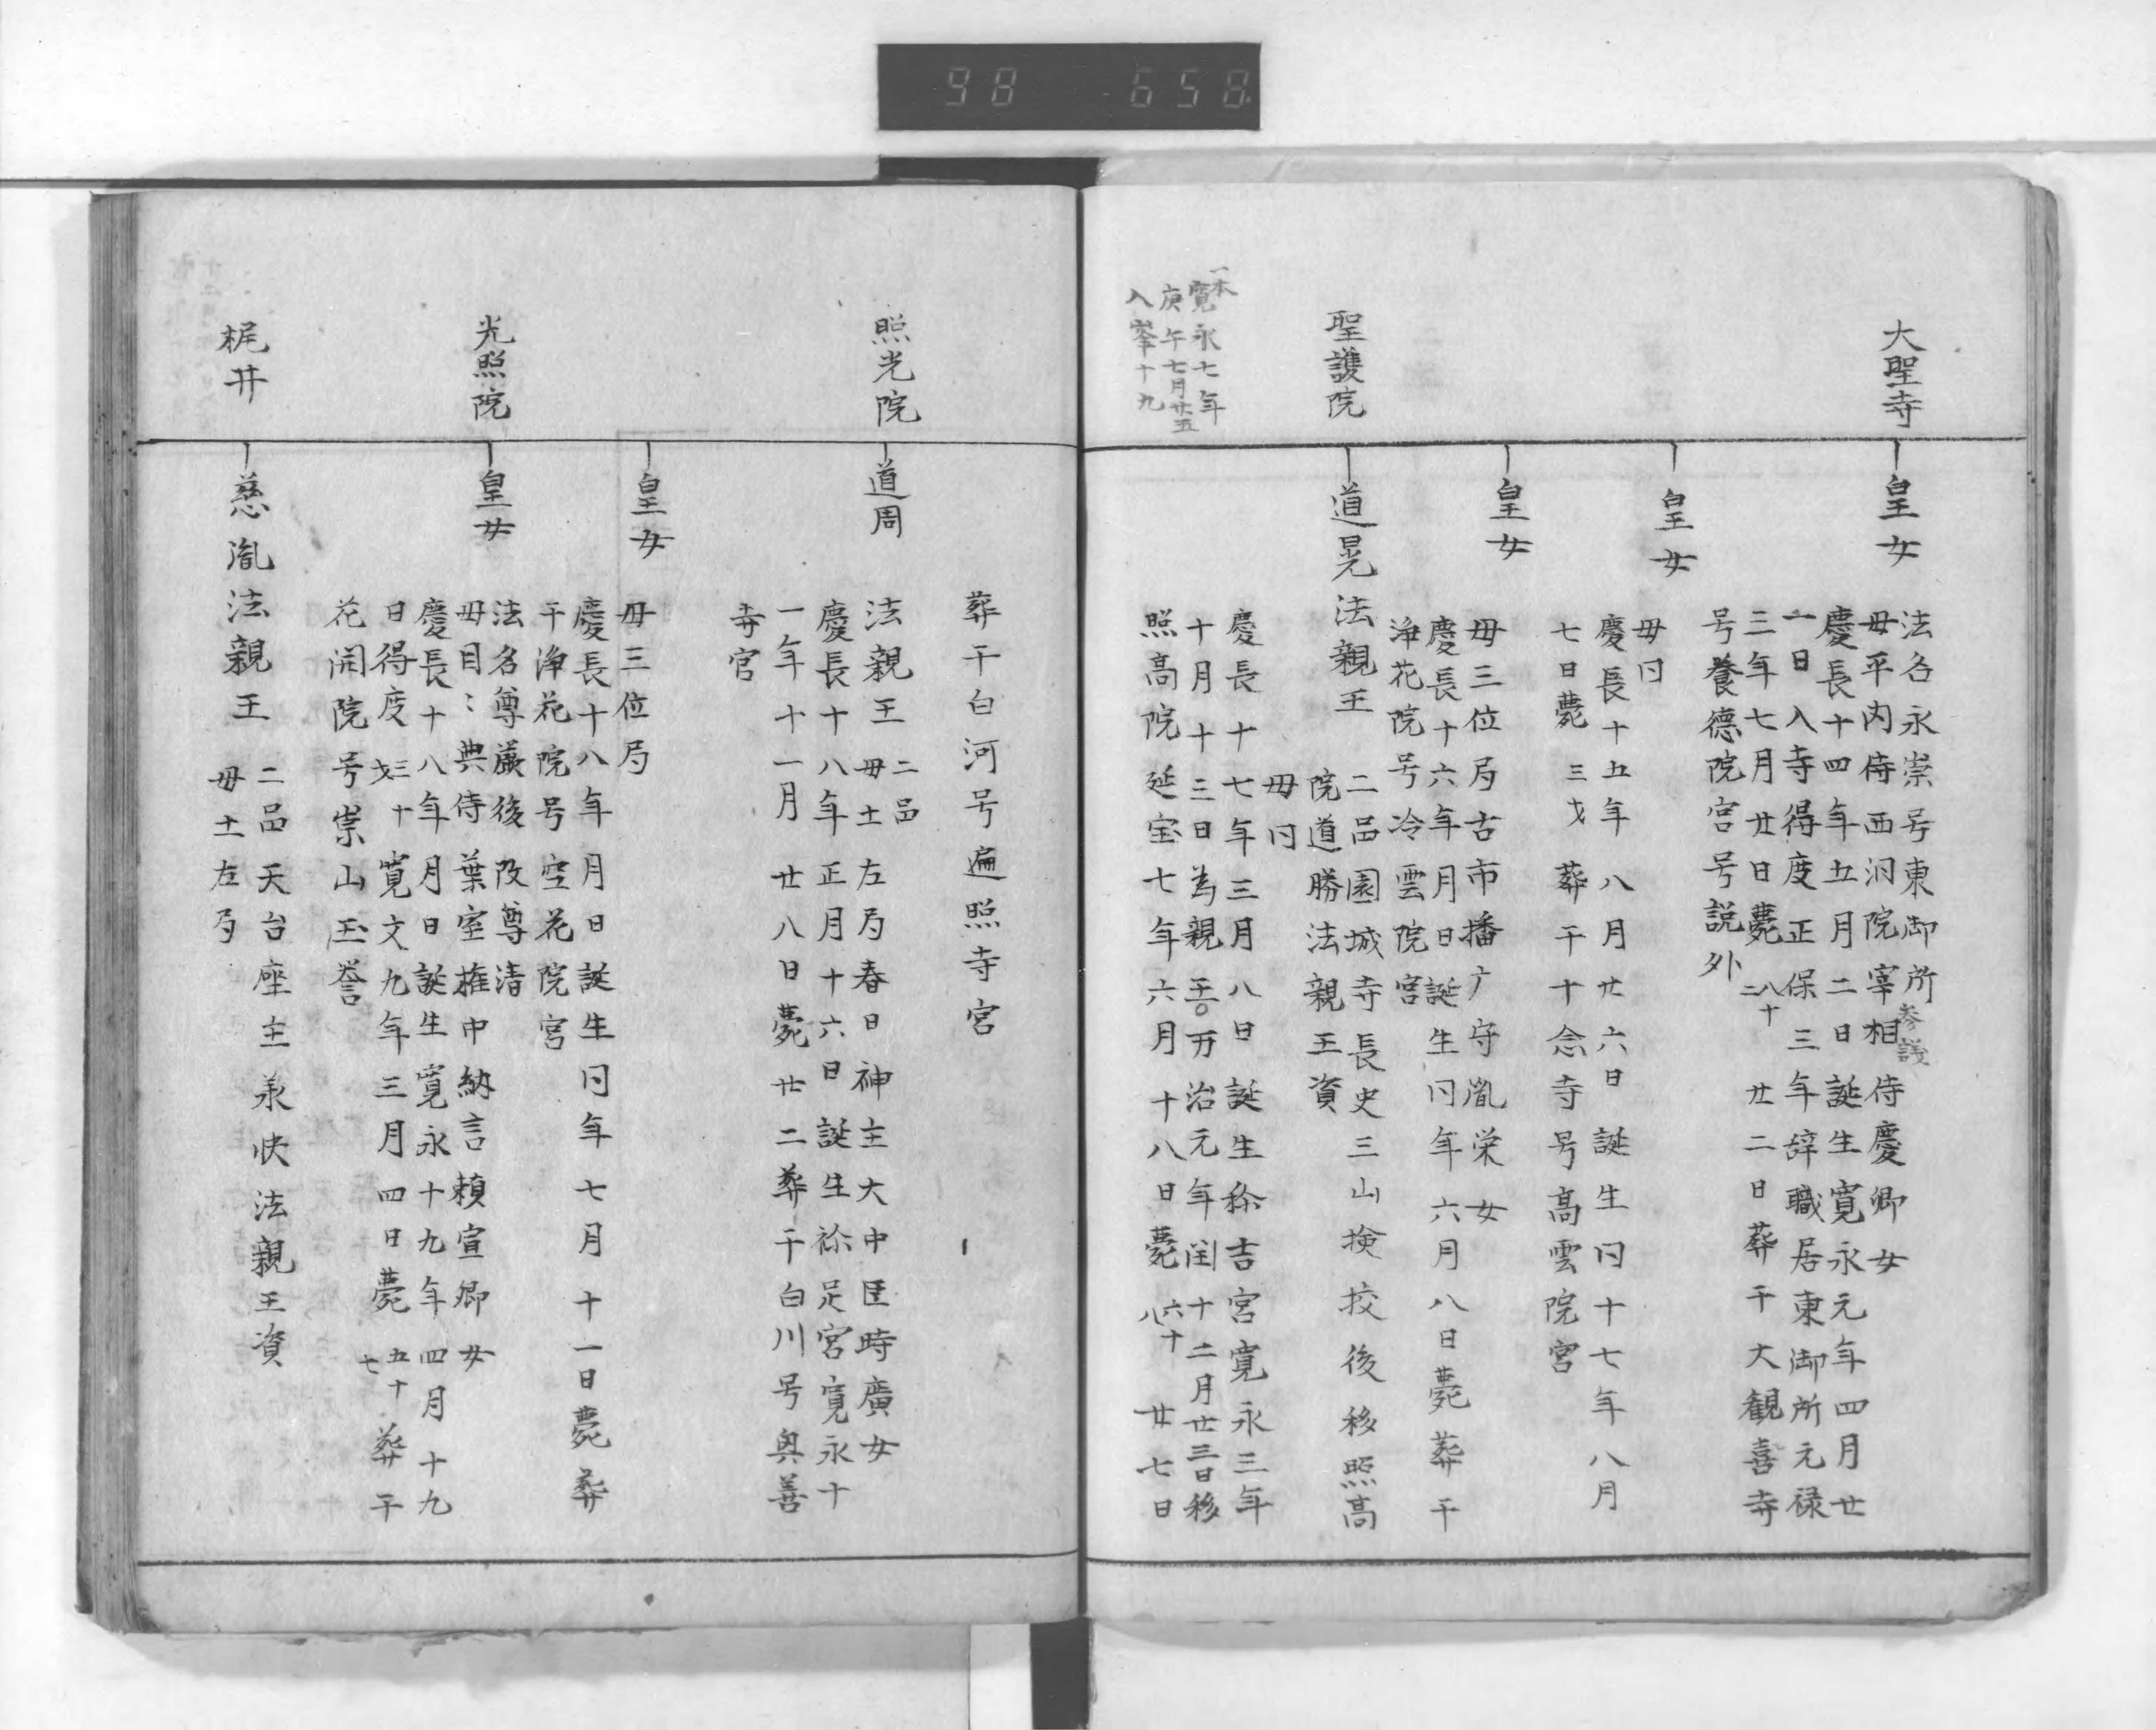 98 658
大聖寺
皇女
法名永崇号東御所
参議
母平内侍西洞院宰相侍慶卿女
慶長十四年五月二日誕生寛永元年四月廿
一日入寺得度正保三年辞職居東御所元禄
三年七月廿日薨八十二廿二日葬于大観喜寺
号養德院宮号説外
皇女
母同
慶長十五年八月廿六日誕生同十七年八月
七日薨三才葬于十念寺号高雲院宮
皇女
母三位局古市播广守胤栄女
慶長十六年月日誕生同年六月八日薨葬于
浄花院号冷雲院宮
聖護院
道晃法親王
二品園城寺長史三山検挍後移照高
院道勝法親王資
母同
慶長十七年三月八日誕生称吉宮寛永三年
十月十三日為親王万治元年閏十二月廿三日移
照高院延宝七年六月十八日薨六十八廿七日
一本
寛永七年
庚午七月廿五
入峯十九
葬于白河号遍照寺宮
照光院
道周
法親王二品
母土左局春日神主大中臣時廣女
慶長十八年正月十六日誕生称足宮寛永十
一年十一月廿八日薨廿二葬于白川号奥善
寺宮
皇女
母三位局
慶長十八年月日誕生同年七月十一日薨葬
于浄花院号空花院宮
光照院
皇女
法名尊厳後改尊清
母目〻典侍葉室権中納言頼宣卿女
慶長十八年月日誕生寛永十九年四月十九
日得度三十才寛文九年三月四日薨五十七葬于
花開院号崇山玉誉
梶井
慈胤法親王
二品天台座主承快法親王資
母土左局